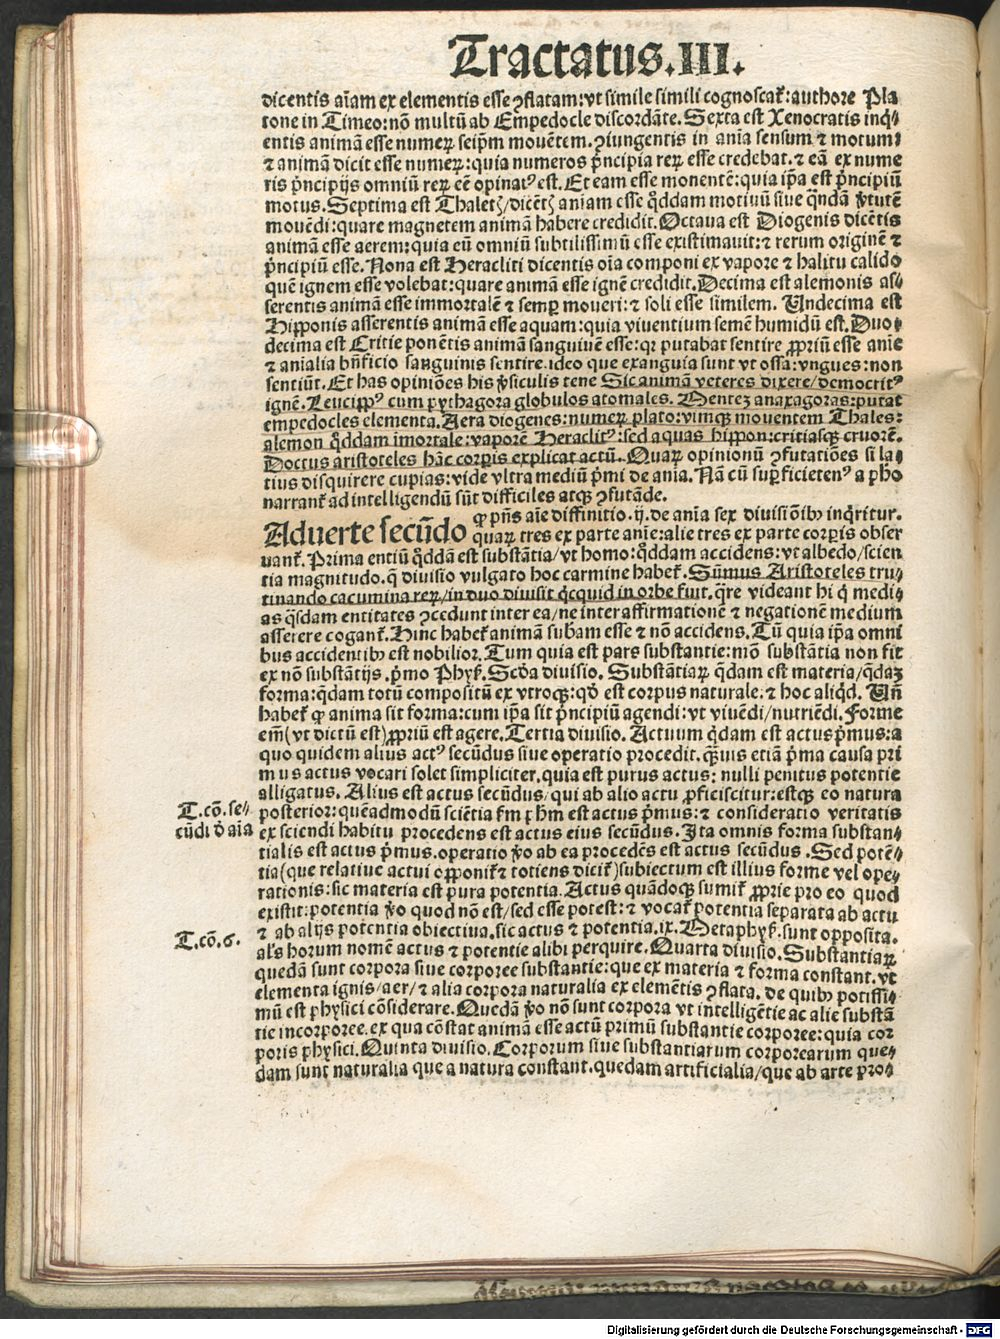 Tractatus.III.
dicentis aĩam ex elementis esse ꝯflatam:vt simile simili cognoscat̃:authore Pla
tone in Timeo:nõ multũ ab Empedocle discordãte. Sexta est Xenocratis inq̃⸗
entis animã esse numeꝝ seip̃m mouẽtem. ꝯiungentis in ania sensum ⁊ motum:
⁊ animã dicit esse numeꝝ:quia numeros p̃ncipia reꝝ esse credebat.⁊ eã ex nume
ris p̃ncipijs omniũ reꝝ eẽ opinatꝰ est. Et eam esse monentẽ:quia ip̃a est p̃ncipiũ
motus. Septima est Thaletꝭ/dicẽtꝭ aniam esse q̃ddam motiuũ siue q̃ndã ṽtutẽ
mouẽdi:quare magnetem animã habere credidit. Octaua est Diogenis dicẽtis
animã esse aerem:quia eũ omniũ subtilissimũ esse existimauit:⁊ rerum originẽ ⁊
p̃ncipiũ esse. Nona est Heracliti dicentis oĩa componi ex vapore ⁊ halitu calido
quẽ ignem esse volebat:quare animã esse ignẽ credidit. Decima est alemonis as⸗
serentis animã esse immortalẽ ⁊ semꝑ moueri:⁊ soli esse similem. Undecima est
Hipponis asserentis animã esse aquam:quia viuentium semẽ humidũ est. Duo⸗
decima est Critie ponẽtis animã sanguiuẽ esse:qꝛ putabat sentire ꝓpriũ esse anie
⁊ anialia bñficio sanguinis sentire.ideo que exanguia sunt vt ossa:vngues:non
sentiũt. Et has opiniões his ṽsiculis tene Sic animã veteres dixere/democritꝰ
ignẽ. Leucippꝰ cum pythagora globulos atomales. Mentez anaxagoras:putat
empedocles elementa. Aera diogenes:numeꝝ plato:vimqꝫ mouentem Thales:
alemon q̃ddam imortale:vaporẽ Heraclitꝰ:sed aquas hippon:critiasqꝫ cruorẽ.
Doctus aristoteles hãc corꝑis explicat actũ. Quaꝝ opinionũ ꝯfutatiões si la⸗
tius disquirere cupias:vide vltra mediũ p̃mi de ania. Nã cũ suꝑficietenꝰ a pho
narrant̃ ad intelligendũ sũt difficiles atqꝫ ꝯfutãde.
Aduerte secũdo ꝙ p̃ns aĩe diffinitio.ij.de anĩa sex diuisiõibꝰ inq̃ritur.
quaꝝ tres ex parte anĩe:alie tres ex parte corꝑis obser
uant̃. Prima entiũ q̃ddã est substãtia/vt homo:q̃ddam accidens:vt albedo/scien
tia magnitudo.q̃ diuisio vulgato hoc carmine habet̃. Sũmus Aristoteles tru⸗
tinando cacumina reꝝ/in duo diuisit q̃cquid in orbe fuit.q̃re videant hi q̃ medi⸗
as q̃sdam entitates ꝯcedunt inter ea/ne inter affirmationẽ ⁊ negationẽ medium
asserere cogant̃. Hinc habet̃ animã subãm esse ⁊ nõ accidens. Tũ quia ip̃a omni
bus accidentibꝰ est nobilior. Tum quia est pars substantie:mõ substãtia non fit
ex nõ substãtijs.p̃mo Phyẜ. Scd̃a diuisio. Substãtiaꝝ q̃dam est materia/q̃daꝫ
forma:q̃dam totũ compositũ ex vtroqꝫ:qđ est corpus naturale.⁊ hoc aliq̃d. Uñ
habet̃ ꝙ anima sit forma:cum ip̃a sit p̃ncipiũ agendi:vt viuẽdi/nutriẽdi. Forme
em̃(vt dictũ est)ꝓpriũ est agere. Tertia diuisio. Actuum q̃dam est actus p̃mus:a
quo quidem alius actꝰ secũdus siue operatio procedit.q̃uis etiã p̃ma causa pri
mus actus vocari solet simpliciter.quia est purus actus: nulli penitus potentie
alligatus. Alius est actus secũdus/qui ab alio actu ꝓficiscitur:estqꝫ eo natura
posterior:quẽadmodũ sciẽtia fm ꝛħm est actus p̃mus:⁊ consideratio veritatis
ex sciendi habitu procedens est actus eius secũdus. Ita omnis forma substan⸗
tialis est actus p̃mus.operatio ṽo ab ea procedẽs est actus secũdus. Sed potẽ⸗
tia(que relatiue actui opponit̃ ⁊ totiens dicit̃)subiectum est illius forme vel ope⸗
rationis:sic materia est pura potentia. Actus quãdoqꝫ sumit̃ ꝓprie pro eo quod
existit:potentia ṽo quod nõ est/sed esse potest:⁊ vocat̃ potentia separata ab actu
⁊ ab alijs potentia obiectiua.sic actus ⁊ potentia.ix. Metaphyẜ.sunt opposita.
al̃s horum nomẽ actus ⁊ potentie alibi perquire. Quarta diuisio. Substantiaꝝ
quedã sunt corpora siue corporee substantie:que ex materia ⁊ forma constant.vt
elementa ignis/aer/⁊ alia corpora naturalia ex elemẽtis ꝯflata. de quibꝰ potissi⸗
mũ est physici cõsiderare. Quedã ṽo nõ sunt corpora vt intelligẽtie ac alie substã
tie incorporee.ex qua cõstat animã esse actũ primũ substantie corporee:quia cor
poris physici. Quinta diuisio. Corporum siue substantiarum corporearum que⸗
dam sunt naturalia que a natura constant.quedam artificialia/que ab arte pro⸗
T.cõ.se⸗
cũdi đ aĩa
T.cõ.6.
Digitalisierung gefördert durch die Deutsche Forschungsgemeinschaft - DFG